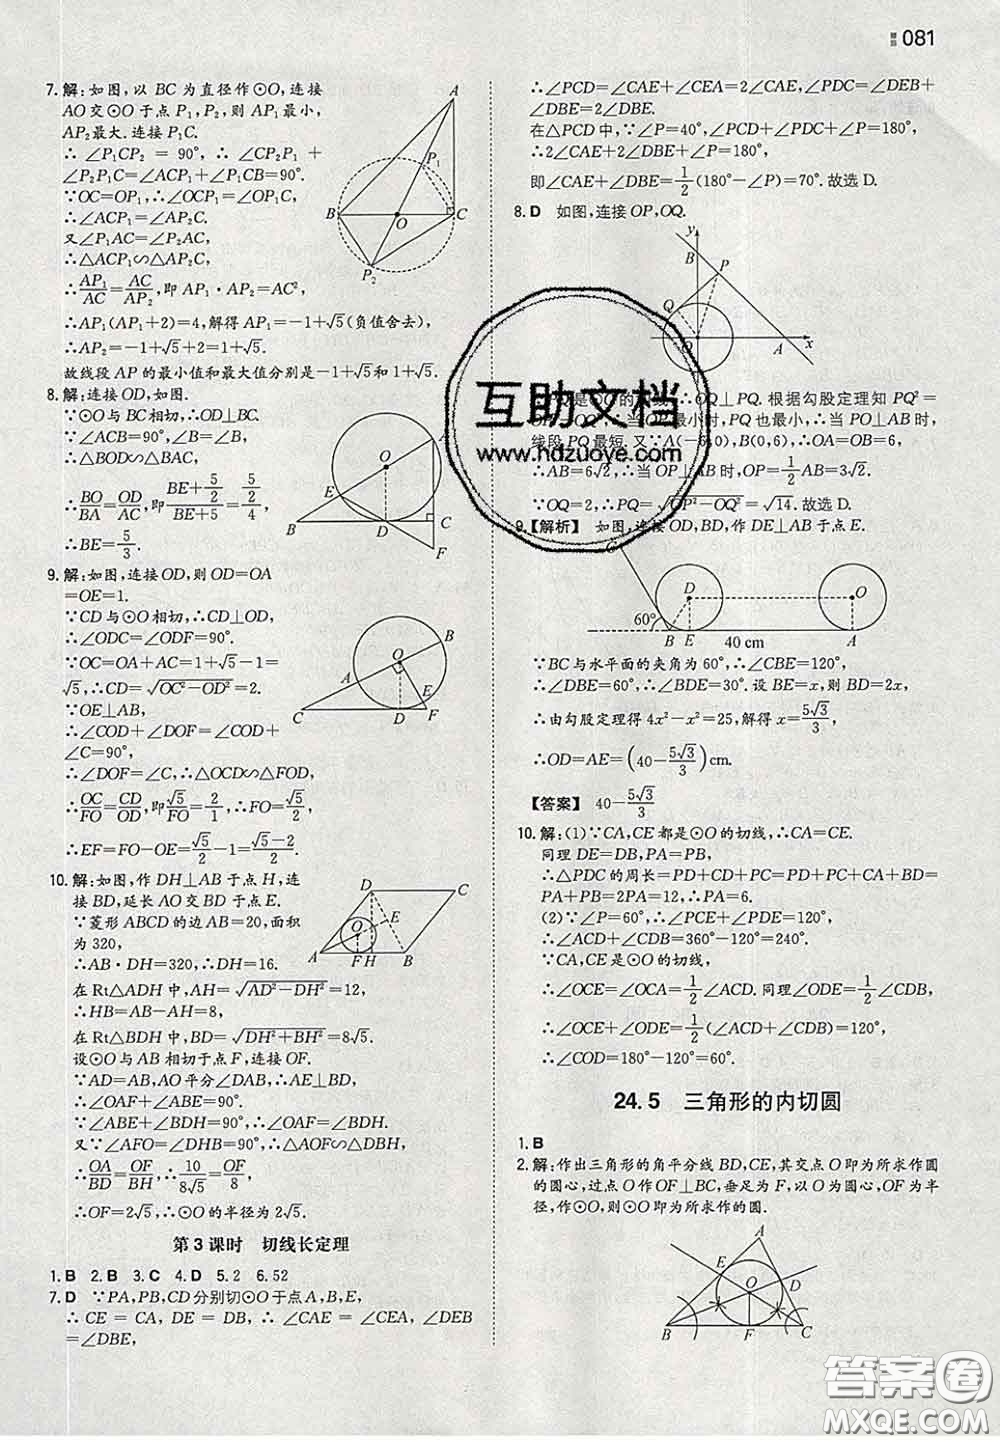 081
7.解:如图,以 BC 为直径作⊙O,连接
AO交⊙O于点P₁,P₂,则 AP₁最小,
AP₂最大.连接P₁C.
∴ ∠P₁CP₂ = 90°,∴ ∠CP₂P₁ +
∠P₂P₁C=∠ACP₁+∠P₁CB=90°.
∵OC=OP₁,∴∠OCP₁=∠OP₁C.
∴∠ACP₁=∠AP₂C.
又∠P₁AC=∠CAP₂,
∴△ACP₁∽△AP₂C,
∴AP₁/AC=AC/AP₂,即 AP₁·AP₂=AC²,
∴AP₁(AP₁+2)=4,解得AP₁=-1+√5(负值舍去),
∴AP₂=-1+√5+2=1+√5.
故线段 AP 的最小值和最大值分别是-1+√5和1+√5.
8.解:连接OD,如图.
∵⊙O与BC相切,∴OD⊥BC.
∵∠ACB=90°,∠B=∠B,
∴△BOD∽△BAC,
∴BO/BA=OD/AC,即(BE+5/2)/(BE+5)=(5/2)/4,
∴BE=5/3.
9.解:如图,连接OD,则OD=OA
=OE=1.
∵CD与⊙O相切,∴CD⊥OD,
∴∠ODC=∠ODF=90°.
∵OC=OA+AC=1+√5-1=
√5,∴CD=√(OC²-OD²)=2.
∵OE⊥AB,
∴∠COD+∠DOF=∠COD+
∠C=90°,
∴∠DOF=∠C,∴△OCD∽△FOD,
∴OC/FO=CD/OD,即√5/FO=2/1,∴FO=√5/2,
∴EF=FO-OE=√5/2-1=(√5-2)/2.
10.解:如图,作 DH⊥AB 于点 H,连
接 BD,延长 AO交 BD于点 E.
∵菱形 ABCD 的边 AB=20,面积
为320,
∴AB·DH=320,∴DH=16.
在 Rt△ADH 中,AH=√(AD²-DH²)=12,
∴HB=AB-AH=8,
在 Rt△BDH 中,BD=√(DH²+BH²)=8√5.
设⊙O与 AB 相切于点 F,连接 OF.
∵AD=AB,AO平分∠DAB,∴AE⊥BD,
∴∠OAF+∠ABE=90°.
∵∠ABE+∠BDH=90°,∴∠OAF=∠BDH.
又∵∠AFO=∠DHB=90°,∴△AOF∽△DBH,
∴OA/BD=OF/BH,∴10/8√5=OF/8,
∴OF=2√5,∴⊙O的半径为2√5.
第3课时 切线长定理
1.B 2.B 3.C 4.D 5.2 6.52
7.D ∵PA,PB,CD分别切⊙O于点A,B,E,
∴ CE = CA, DE = DB, ∴ ∠CAE = ∠CEA, ∠DEB
=∠DBE,
A
P₁
B
O
C
P₂
A
O
E
B
D
C
F
B
A
O
E
C
D
F
D
C
E
O
A
F
H
B
∴∠PCD=∠CAE+∠CEA=2∠CAE,∠PDC=∠DEB+
∠DBE=2∠DBE.
在△PCD中,∵∠P=40°,∠PCD+∠PDC+∠P=180°,
∴2∠CAE+2∠DBE+∠P=180°,
即∠CAE+∠DBE=1/2(180°-∠P)=70°.故选D.
8.D 如图,连接OP,OQ.
y
B
P
Q
O
A
x
的 ∴OQ⊥PQ.根据勾股定理知 PQ²=
∴当 最小时,PQ也最小,∴当 PO⊥AB时,
线段PQ最短.又∵A(-6,0),B(0,6),∴OA=OB=6,
∴AB=6√2,∴当 OP⊥AB时,OP=1/2AB=3√2.
∵OQ=2,∴PQ=√(OP²-OQ²)=√14.故选D.
9.【解析】 如图,连接OD,BD,作 DE⊥AB于点E.
C
D
O
60°
B
E
40 cm
A
∵BC与水平面的夹角为60°,∴∠CBE=120°,
∴∠DBE=60°,∴∠BDE=30°.设 BE=x,则 BD=2x,
∴由勾股定理得4x²-x²=25,解得x=5√3/3,
∴OD=AE=(40-5√3/3)cm.
【答案】 40-5√3/3
10.解:(1)∵CA,CE都是⊙O的切线,∴CA=CE.
同理DE=DB,PA=PB,
∴△PDC的周长=PD+CD+PC=PD+PC+CA+BD=
PA+PB=2PA=12,∴PA=6.
(2)∵∠P=60°,∴∠PCE+∠PDE=120°,
∴∠ACD+∠CDB=360°-120°=240°.
∵CA,CE是⊙O的切线,
∴∠OCE=∠OCA=1/2∠ACD.同理∠ODE=1/2∠CDB,
∴∠OCE+∠ODE=1/2(∠ACD+∠CDB)=120°,
∴∠COD=180°-120°=60°.
24.5 三角形的内切圆
1.B
2.解:作出三角形的角平分线 BD,CE,其交点O即为所求作圆
的圆心,过点 O作 OF⊥BC,垂足为F,以 O为圆心,OF为半
径,作⊙O,⊙O即为所求作的圆.
A
E
D
O
B
F
C
互助文档
www.hdzuoye.com
答案圈
MXQE.COM